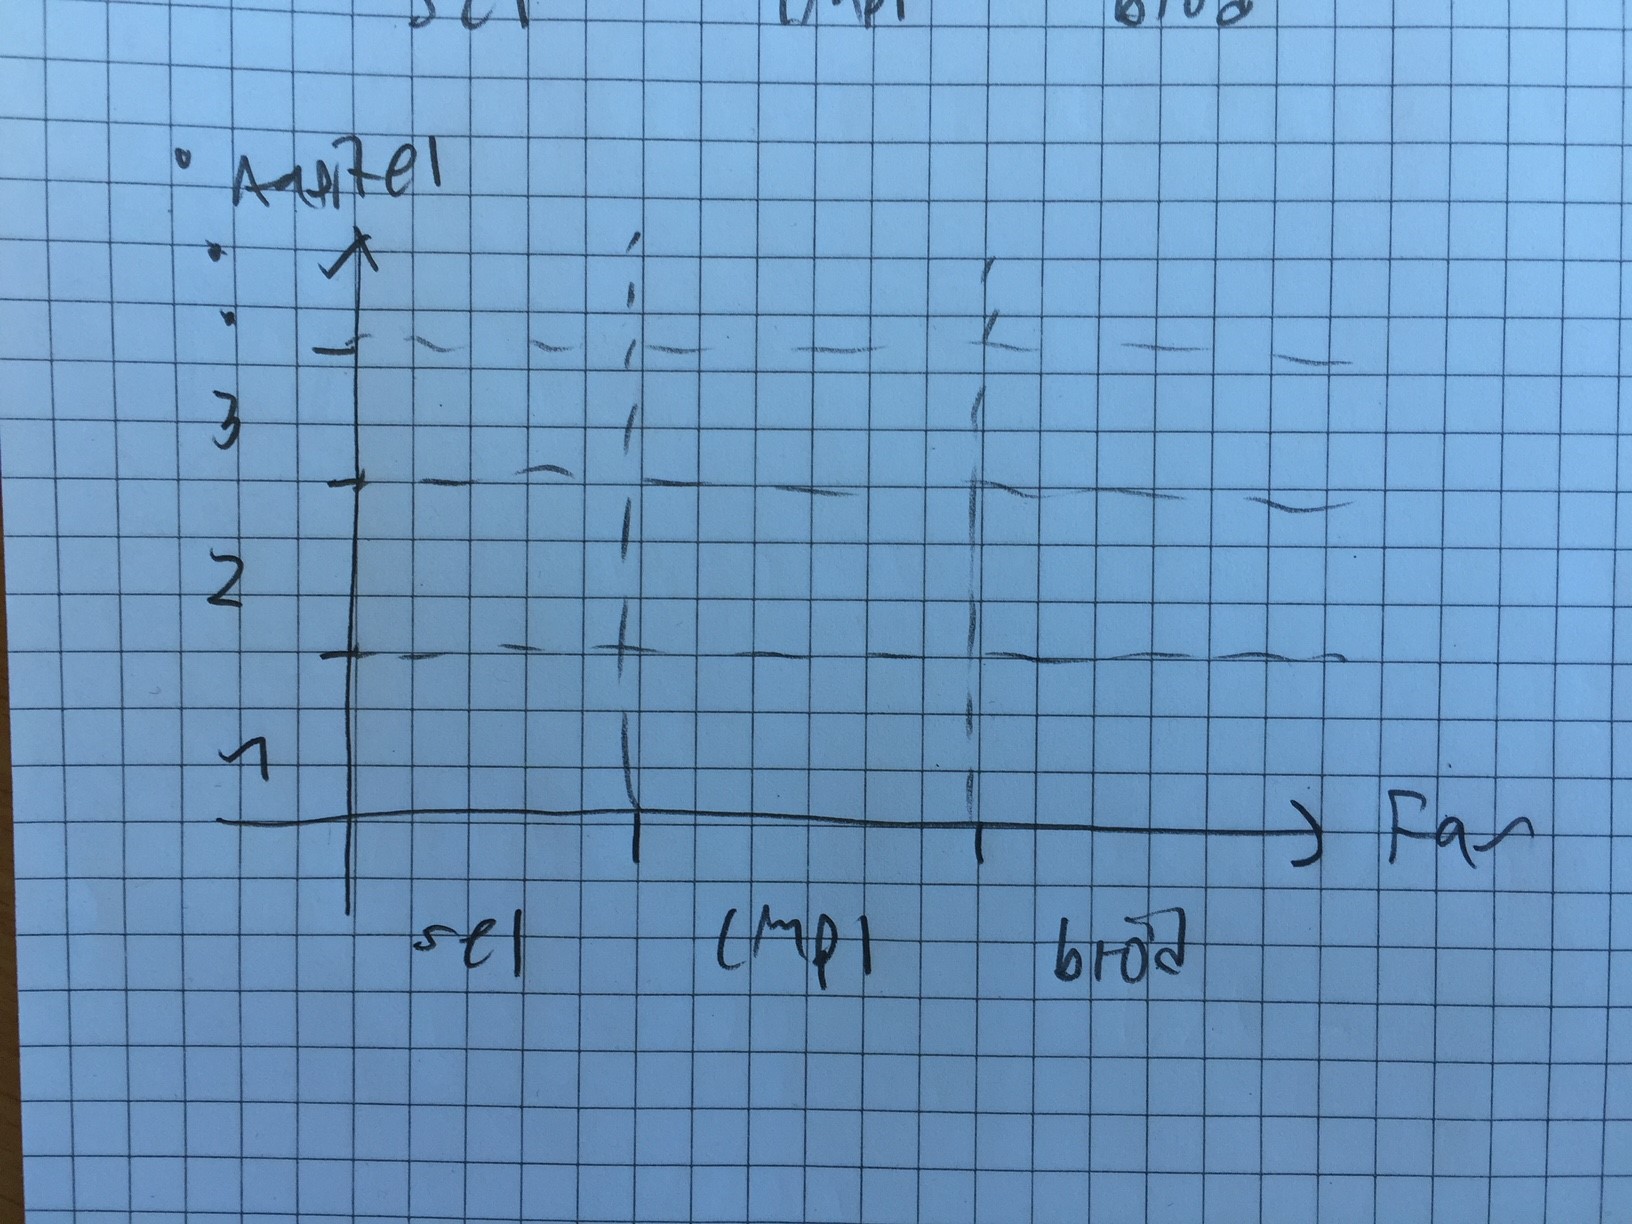 sel cmpl brod
Kapitel
3
2
1
Fan
sel cmpl brod